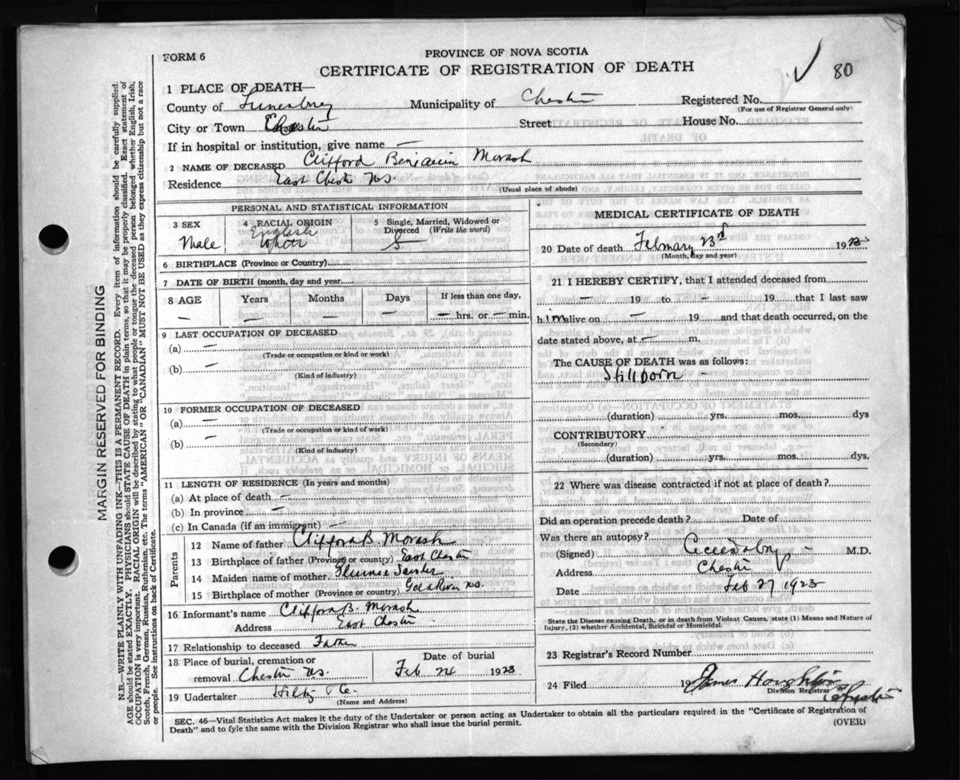 FORM 6
PROVINCE OF NOVA SCOTIA
CERTIFICATE OF REGISTRATION OF DEATH
80
1 PLACE OF DEATH—
County of Lunenburg Municipality of Chester Registered No.
(For use of Registrar General only)
City or Town Chester Street House No.
If in hospital or institution, give name —
2 NAME OF DECEASED Clifford Benjamin Morash
Residence East Chester NS
(Usual place of abode)
PERSONAL AND STATISTICAL INFORMATION
3 SEX Male
4 RACIAL ORIGIN English White
5 Single, Married, Widowed or Divorced (Write the word) S
6 BIRTHPLACE (Province or Country)
7 DATE OF BIRTH (month, day and year)
8 AGE Years Months Days If less than one day,
— — — — — hrs. or — min.
9 LAST OCCUPATION OF DECEASED
(a) —
(Trade or occupation or kind or work)
(b) —
(Kind of industry)
10 FORMER OCCUPATION OF DECEASED
(a) —
(Trade or occupation or kind or work)
(b) —
(Kind of industry)
11 LENGTH OF RESIDENCE (In years and months)
(a) At place of death —
(b) In province —
(c) In Canada (if an immigrant) —
Parents
12 Name of father Clifford B. Morash
13 Birthplace of father (Province or country) East Chester
14 Maiden name of mother
15 Birthplace of mother (Province or country) NS.
16 Informant's name Clifford B. Morash
Address East Chester
17 Relationship to deceased Father
18 Place of burial, cremation or removal Chester NS
Date of burial Feb 24 1923
19 Undertaker Hiltz & Co.
(Name and Address)
MEDICAL CERTIFICATE OF DEATH
20 Date of death February 23rd 192
(Month, day and year)
21 I HEREBY CERTIFY, that I attended deceased from
— 19 to — 19 that I last saw
him alive on — 19 and that death occurred, on the
date stated above, at — m.
The CAUSE OF DEATH was as follows:
Stillborn —
(duration) yrs. mos. dys
CONTRIBUTORY
(Secondary)
(duration) yrs. mos. dys.
22 Where was disease contracted if not at place of death?
Did an operation precede death? Date of
Was there an autopsy?
(Signed) M.D.
Address Chester
Date Feb 27 1923
State the Disease causing Death, or in death from Violent Causes, state (1) Means and Nature of
Injury, (2) whether Accidental, Suicidal or Homicidal.
23 Registrar's Record Number
24 Filed 19 James Houghton
Division Registrar
Chester
SEC. 46—Vital Statistics Act makes it the duty of the Undertaker or person acting as Undertaker to obtain all the particulars required in the "Certificate of Registration of
Death" and to fyle the same with the Division Registrar who shall issue the burial permit.
(OVER)
MARGIN RESERVED FOR BINDING
N.B.—WRITE PLAINLY WITH UNFADING INK—THIS IS A PERMANENT RECORD. Every item of information should be carefully supplied.
AGE should be stated EXACTLY. PHYSICIANS should STATE CAUSE OF DEATH in plain terms, so that it may be properly classified. Exact statement of
OCCUPATION is very important. RACIAL ORIGIN will be described by stating to what people or tongue the deceased person belonged whether English, Irish,
Scotch, French, German, Russian, Ruthenian, etc. The terms "AMERICAN" or "CANADIAN" MUST NOT BE USED as they express citizenship but not a race
or people. See instructions on back of Certificate.